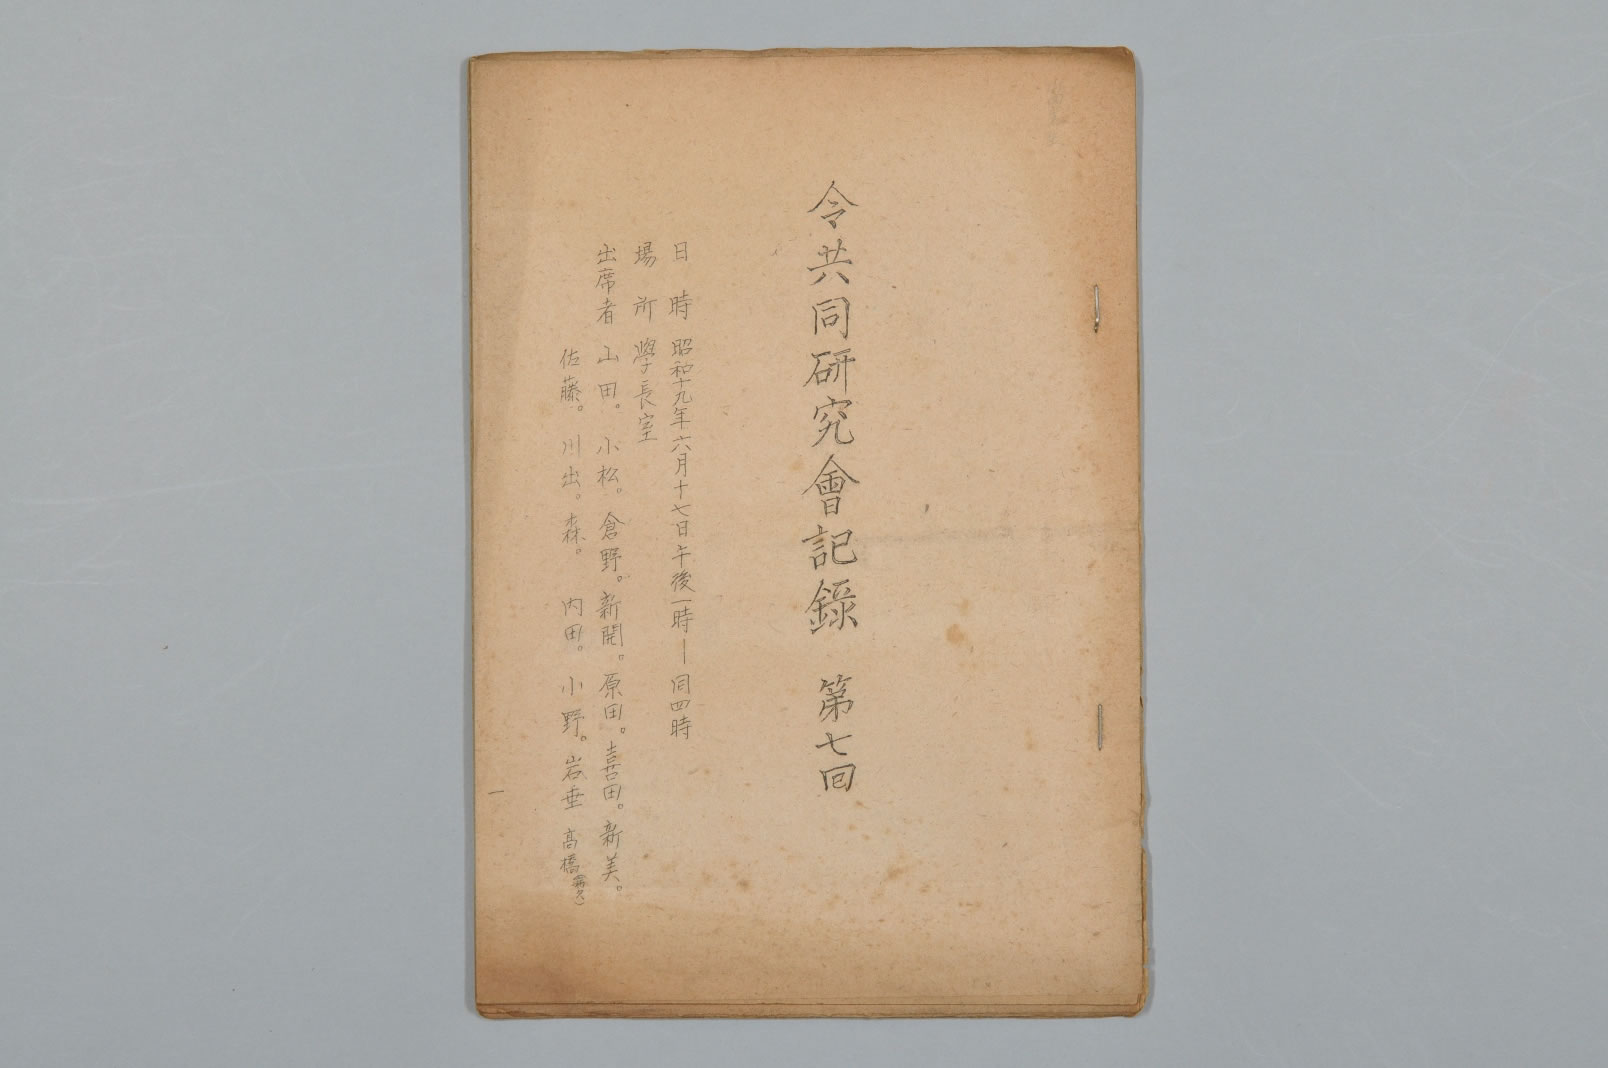 令共同研究會記錄　第七回
日　時　昭和十九年六月十七日午後一時―同四時
場　所　學長室
出席者　山田。小松。倉野。新開。原田。喜田。新美。
佐藤。川出。森。内田。小野。岩垂　高橋